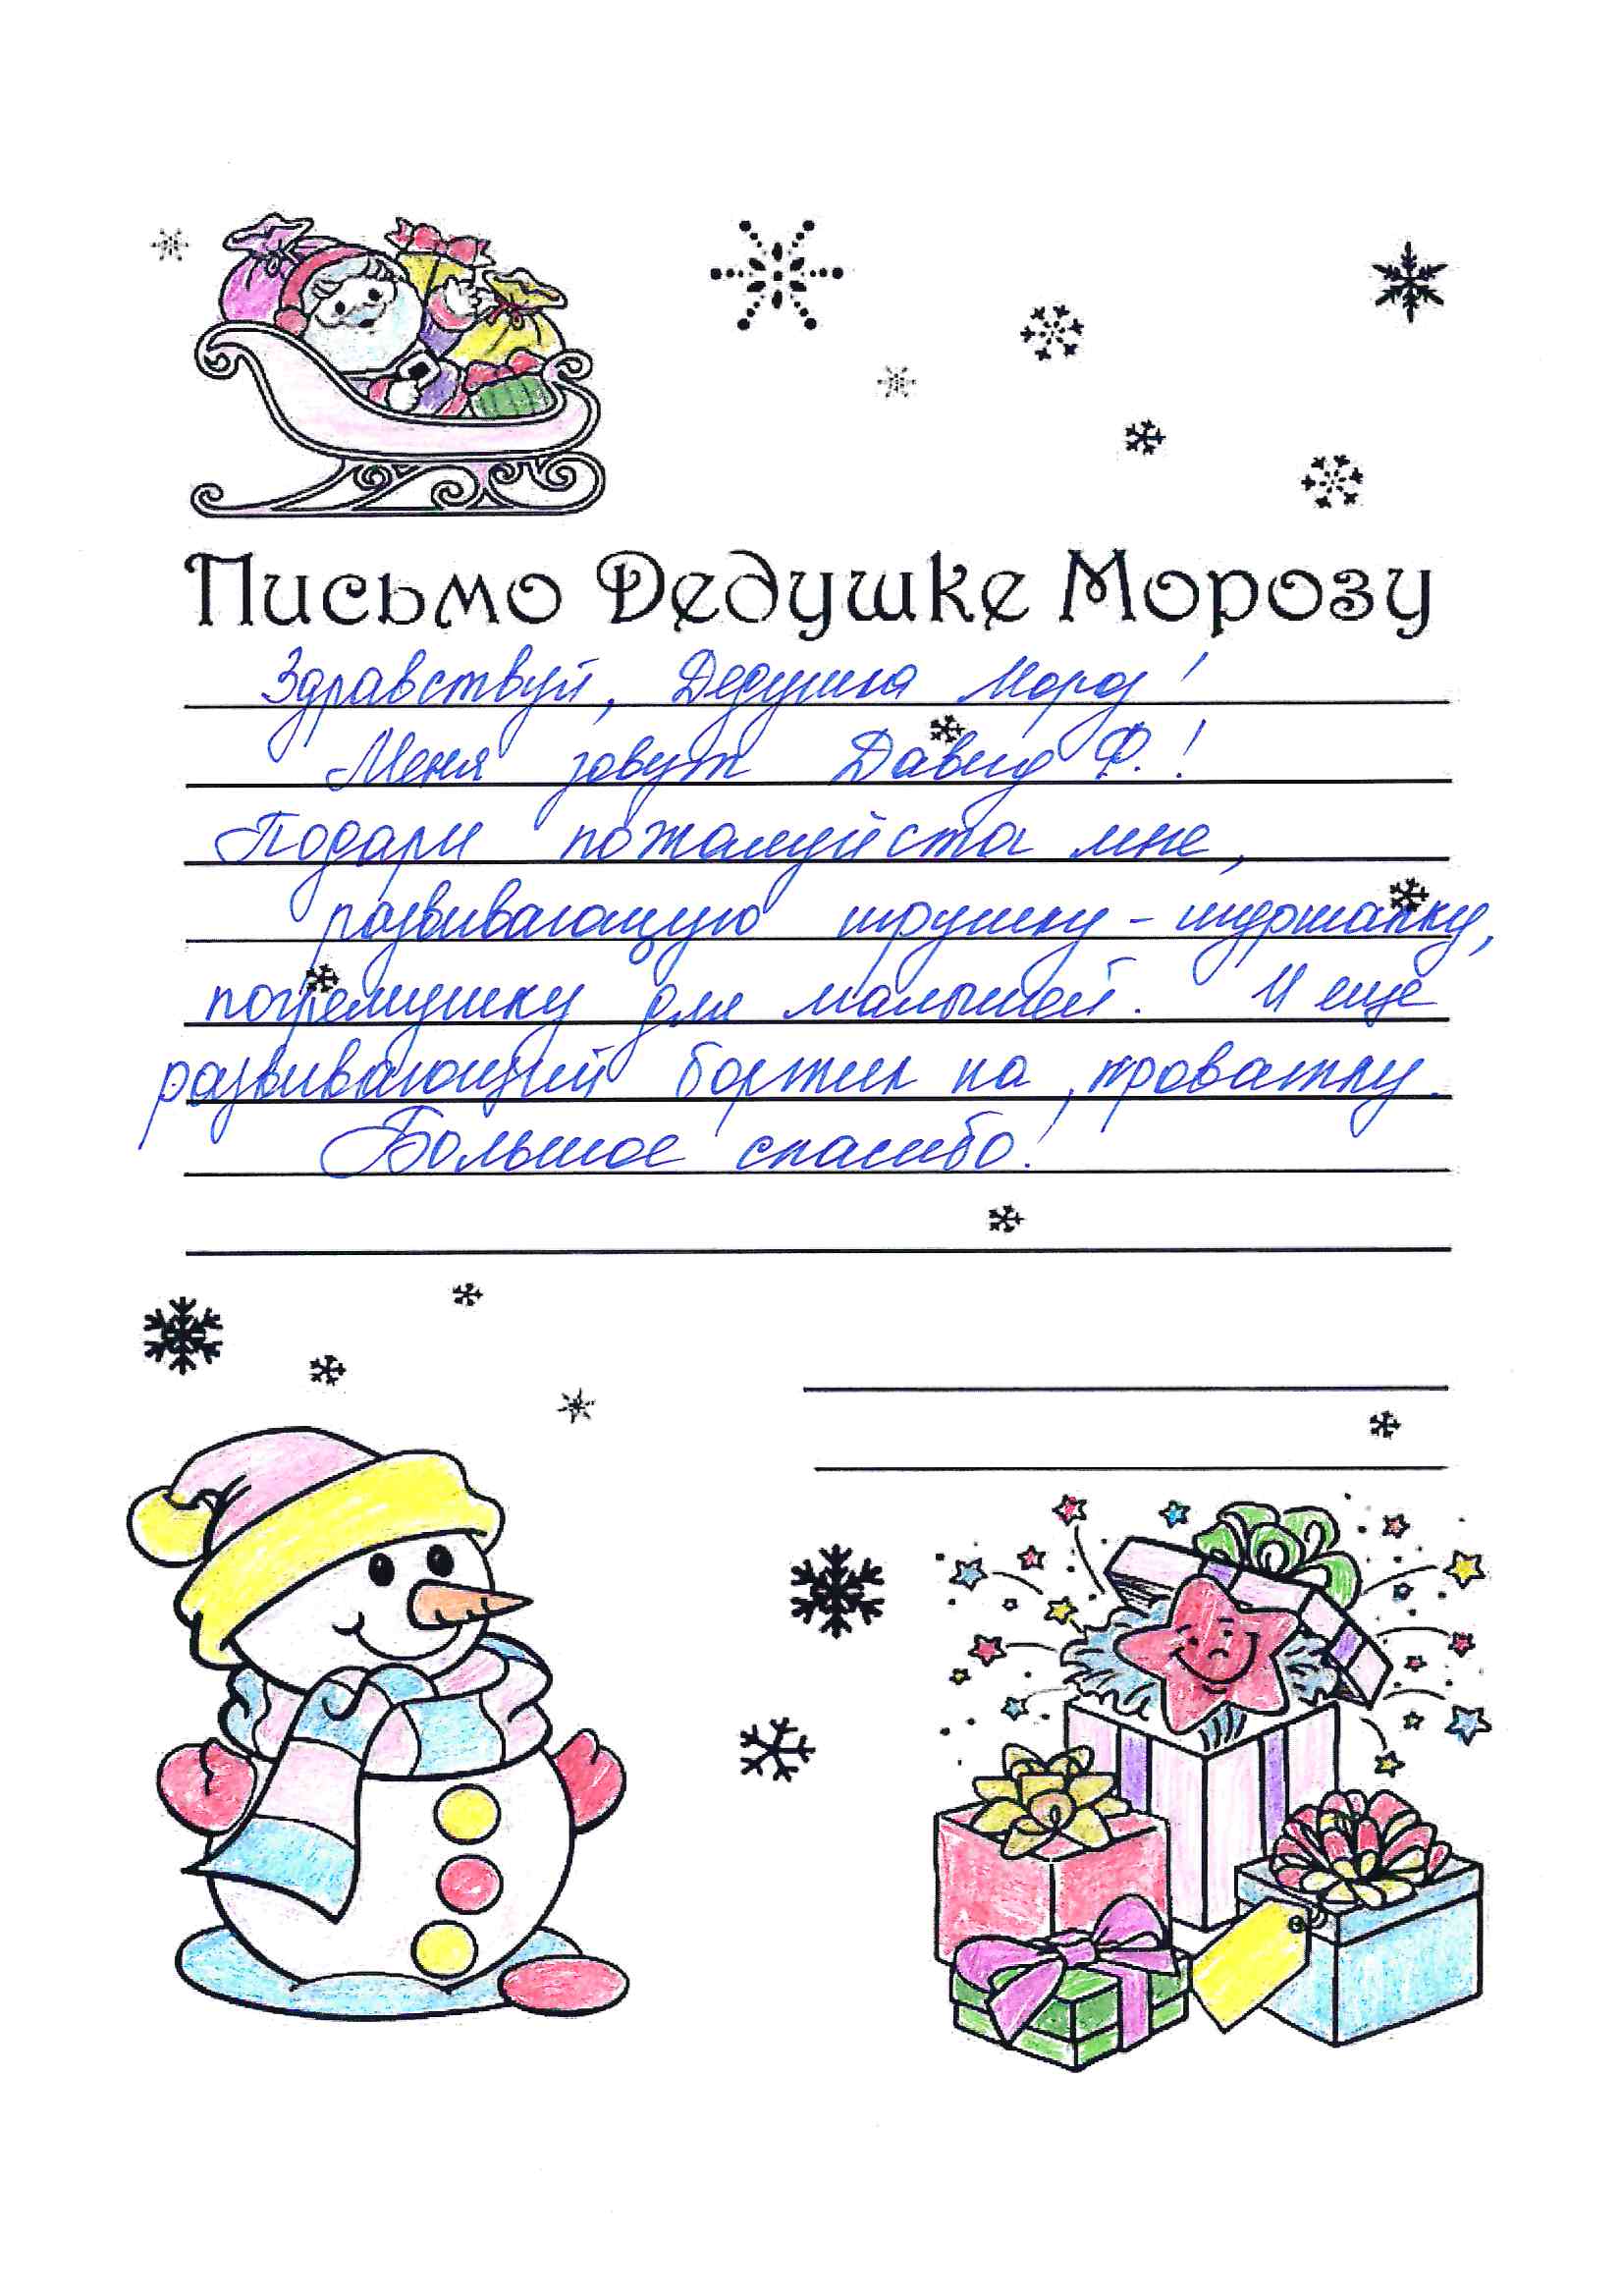 Письмо Дедушке Морозу
Здравствуй, Дедушка Мороз!
Меня зовут Давид Ф.!
Подари пожалуйста мне,
развивающую игрушку - шуршалку,
погремушку для малышей. И еще
развивающий бортик на кроватку.
Большое спасибо!